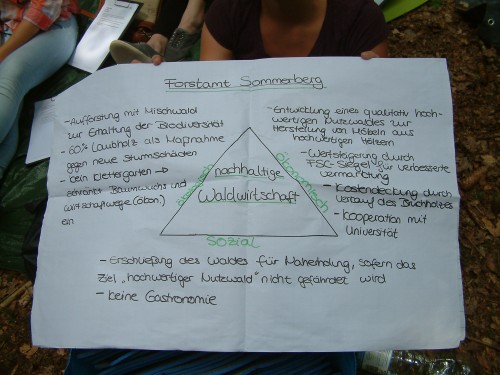 Forstamt Sommerberg
- Aufforstung mit Mischwald
zur Erhaltung der Biodiversität
- 60% Laubholz als Maßnahme
gegen neue Sturmschäden
- kein Klettergarten →
schränkt Baumwuchs und
Wirtschaftswege (ökon.)
ein
- Entwicklung eines qualitativ hoch-
wertigen Nutzwaldes zur
Herstellung von Möbeln aus
hochwertigen Hölzern
- Wertsteigerung durch
FSC-Siegel für verbesserte
Vermarktung
- Kostendeckung durch
Verkauf des Buchholzes
- Kooperation mit
Universität
Ökonomisch
nachhaltige
Waldwirtschaft
Sozial
- Erschließung des Waldes für Naherholung, sofern das
Ziel „hochwertiger Nutzwald" nicht gefährdet wird
- keine Gastronomie